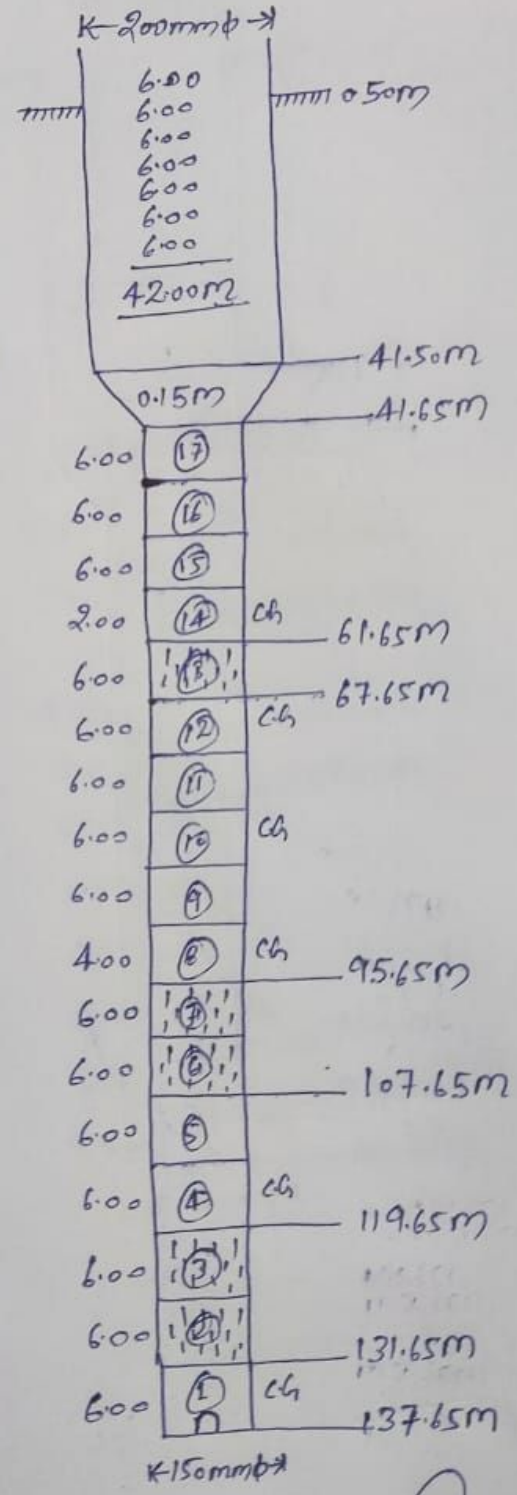 K-200mmφ-→
6.00
6.00 0.50m
6.00
6.00
6.00
6.00
6.00
42.00m
41.50m
0.15m
41.65m
6.00 17
6.00 16
6.00 15
2.00 14 CG
61.65m
6.00 13
67.65m
6.00 12 CG
6.00 11
6.00 10 CG
6.00 9
4.00 8 CG
95.65m
6.00 7
6.00 6
107.65m
6.00 5
6.00 4 CG
119.65m
6.00 3
6.00 2
131.65m
6.00 1 CG
137.65m
K-150mmφ→